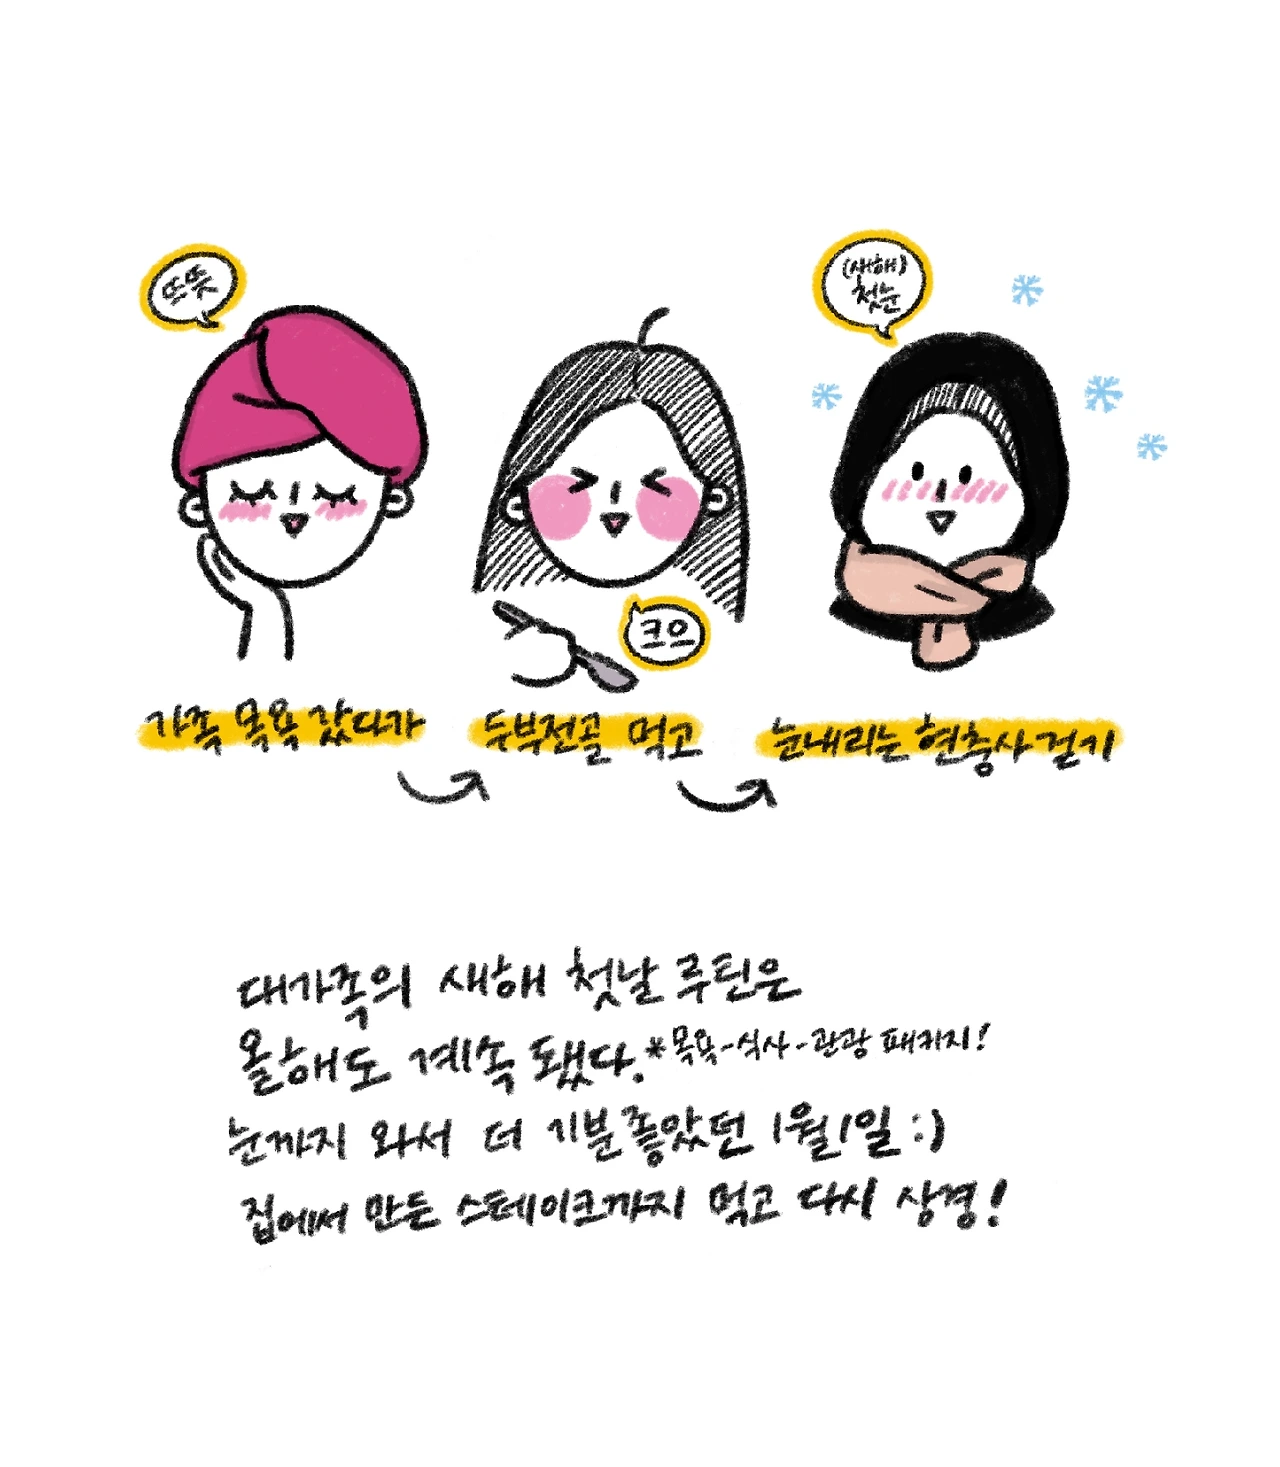 뜨뜻
(새해)
첫눈
크으
가족 목욕 갔다가
두부전골 먹고
눈내리는 현충사 걷기
대가족의 새해 첫날 루틴은
올해도 계속 됐다. *목욕-식사-관광 패키지!
눈까지 와서 더 기분좋았던 1월1일 :)
집에서 만든 스테이크까지 먹고 다시 상경!